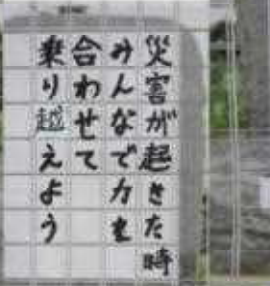 災害が起きた時
みんなで力を
合わせて
乗り越えよう